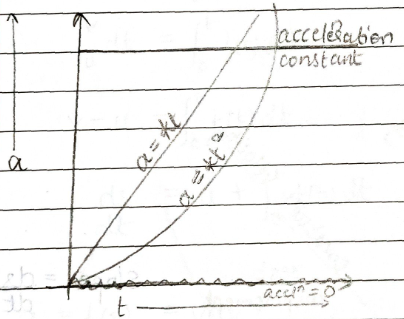 acceleration
constant
a
a = kt
a = kt²
accⁿ = 0
t